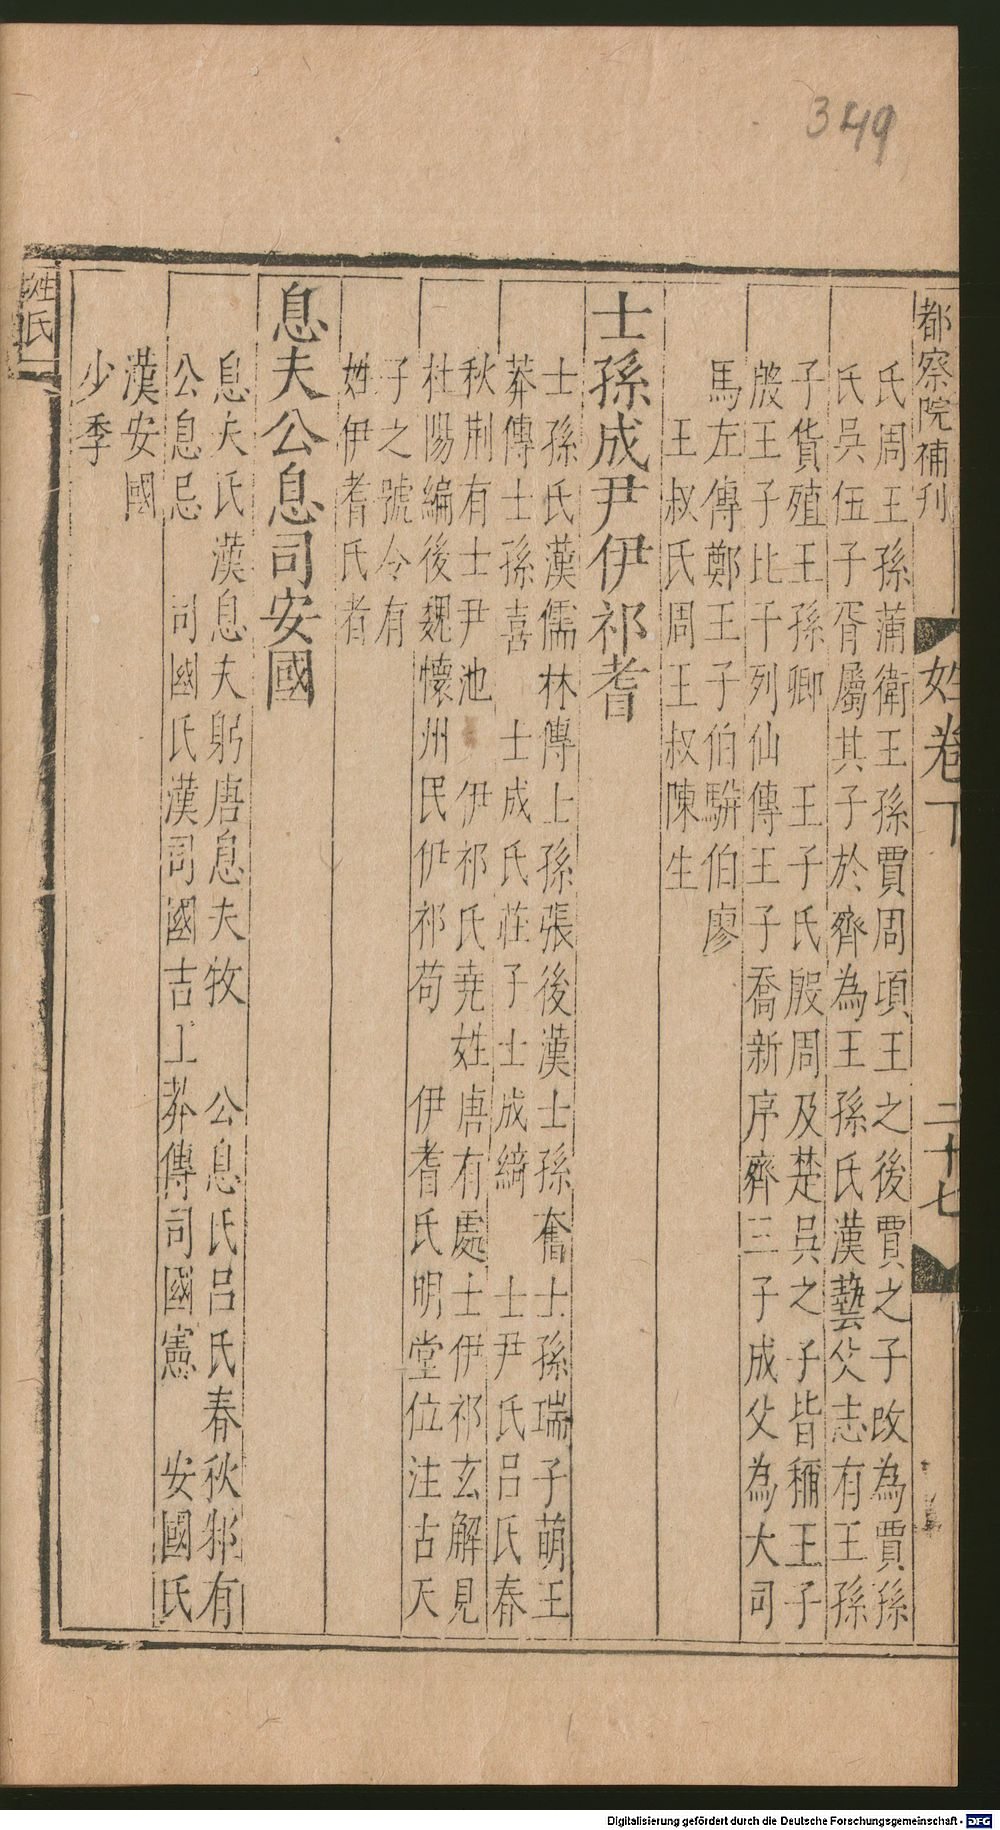 349
都察院補刊
姓卷下
二十七
氏周王孫蒲衛王孫賈周頃王之後賈之子改為賈孫
氏吳伍子胥屬其子於齊為王孫氏漢藝文志有王孫
子貨殖王孫卿　王子氏殷周及楚吳之子皆稱王子
殷王子比干列仙傳王子喬新序齊王子成父為大司
馬左傳鄭王子伯駢伯廖
王叔氏周王叔陳生
士孫成尹伊祁耆
士孫氏漢儒林傳士孫張後漢士孫奮士孫瑞子萌王
莽傳士孫喜　士成氏莊子士成綺　士尹氏呂氏春
秋荆有士尹池　伊祁氏堯姓唐有處士伊祁玄解見
杜陽編後魏懷州民伊祁苟　伊耆氏明堂位注古天
子之號令有
姓伊耆氏者
息夫公息司安國
息夫氏漢息夫躬唐息夫牧　公息氏呂氏春秋邾有
公息忌　司國氏漢司國吉王莽傳司國憲　安國氏
漢安國
少季
姓氏
Digitalisierung gefördert durch die Deutsche Forschungsgemeinschaft - DFG